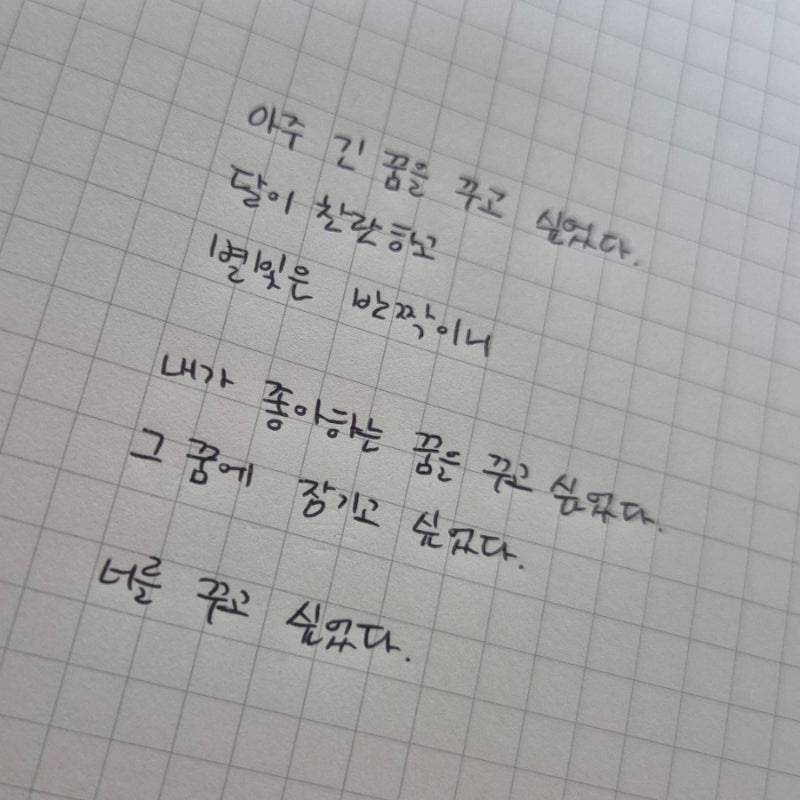 아주 긴 꿈을 꾸고 싶었다.
달이 찬란하고
별빛은 반짝이니
내가 좋아하는 꿈을 꾸고 싶었다.
그 꿈에 잠기고 싶었다.
너를 꾸고 싶었다.